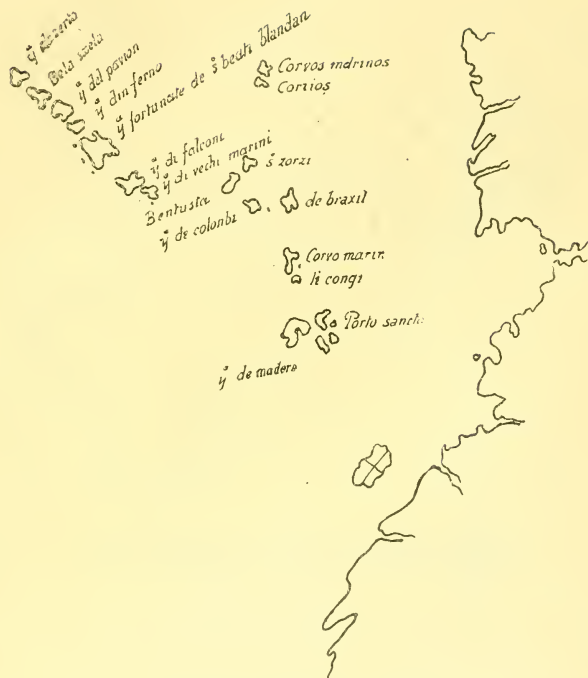 ẙ dezerto
Bela siuela
ẙ del pavion
ẙ din ferno
ẙ fortunate de s̊ beati blandan
Corvos mdrinos
Conios
ẙ di falconi
ẙ di vechi marini
s̊ zorzi
Bentusta
ẙ de colonbi
de braxil
Corvo marin
li congi
Porto sancto
ẙ de madera